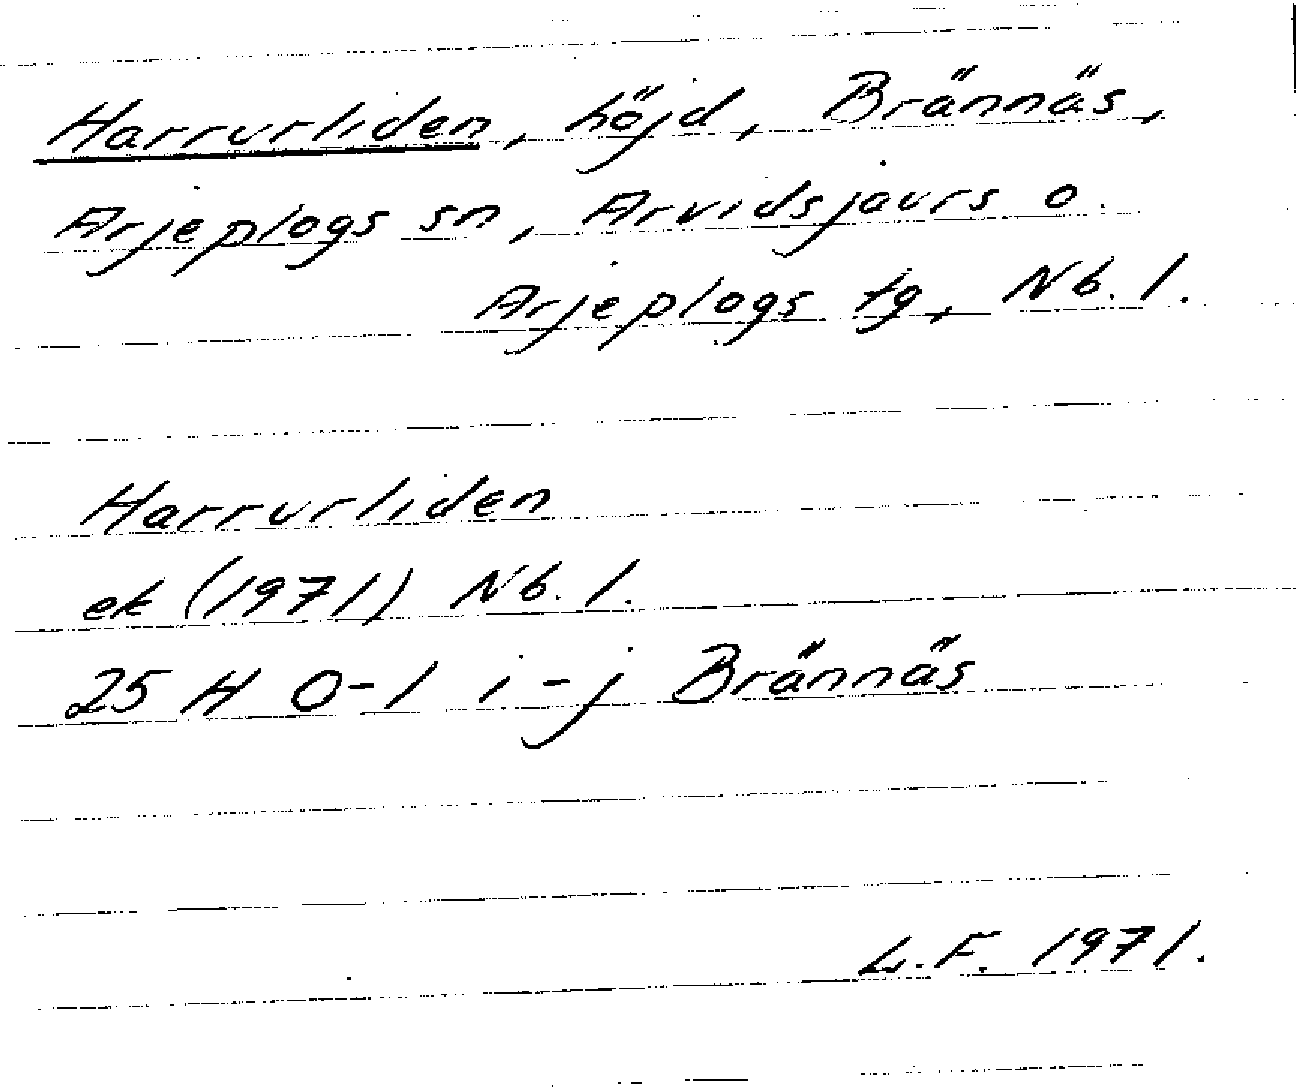 Harrurliden, höjd, Brännäs,
Arjeplogs sn, Arvidsjaurs o.
Arjeplogs tg, Nb. l.
Harrurliden
ek (1971) Nb. l.
25 H 0-1 i-j Brännäs
L.F. 1971.